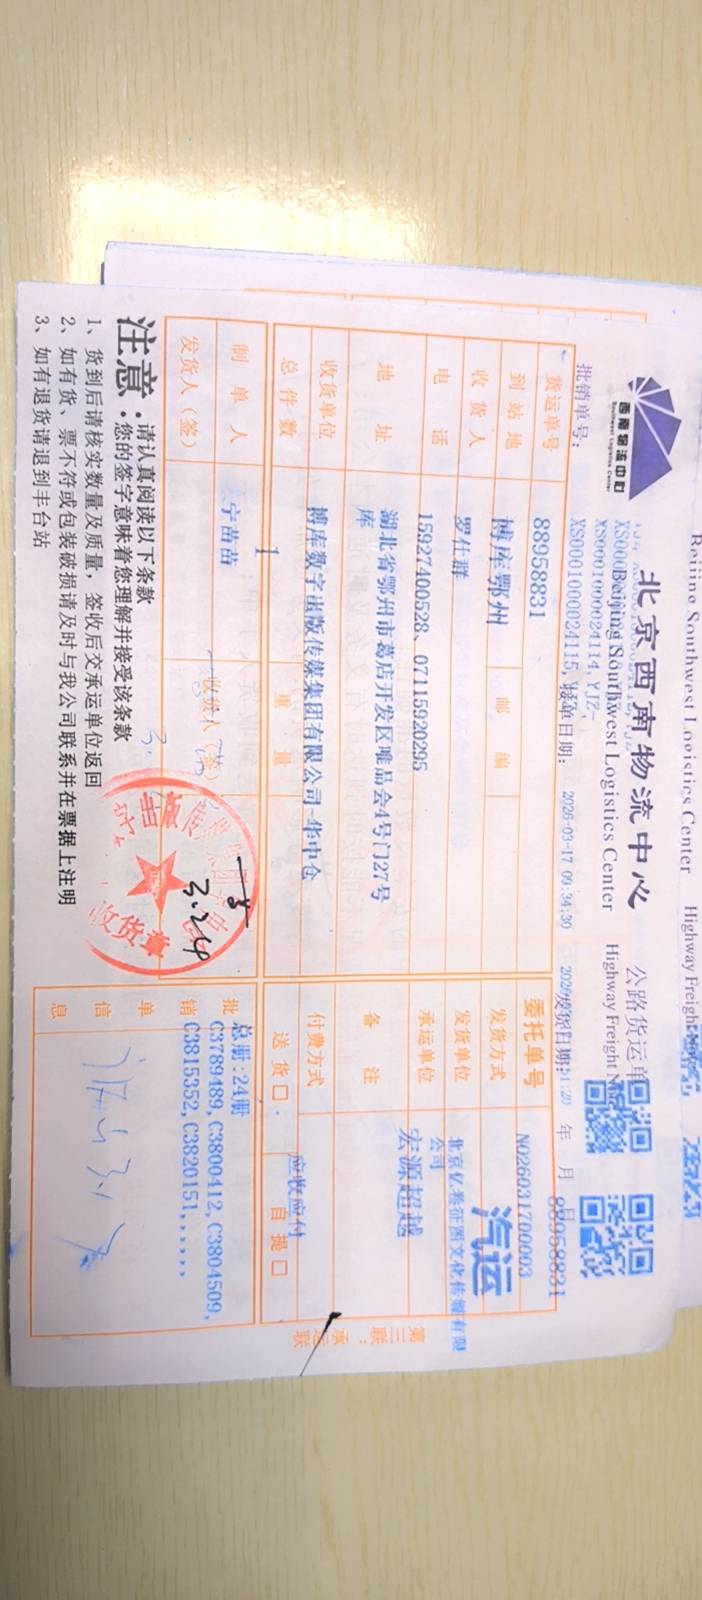 Beijing Southwest Logistics Center Highway Freight
西南物流中心
Southwest Logistics Center
北京西南物流中心 公路货运单
Beijing Southwest Logistics Center Highway Freight
XS0001000024114,YJZ-
XS0001000024115,YJZ-
批销单号：
接单日期： 2026-03-17 09:34:30
发货日期： 年 月 日
88958831
货运单号 88958831
委托单号 N0260317000003
到站地 博库鄂州 邮编
发货方式 汽运
收货人 罗仕群
发货单位 北京亿卷征图文化传媒有限公司
电话 15927400528、07115920295
承运单位 宏源超越
地址 湖北省鄂州市葛店开发区唯品会4号门27号库
备注
收货单位 博库数字出版传媒集团有限公司-华中仓
付费方式 应收应付
总件数 1 重量
送货□ 自提□
制单人 宁苗苗 收货人（签）
发货人（签）
3.24
收货章
批销单信息
总册:24册
C3789489,C3800412,C3804509,
C3815352,C3820151,,,,,,
第三联：承运联
注意：请认真阅读以下条款
您的签字意味着您理解并接受该条款
1、货到后请核实数量及质量，签收后交承运单位返回
2、如有货、票不符或包装破损请及时与我公司联系并在票据上注明
3、如有退货请退到丰台站